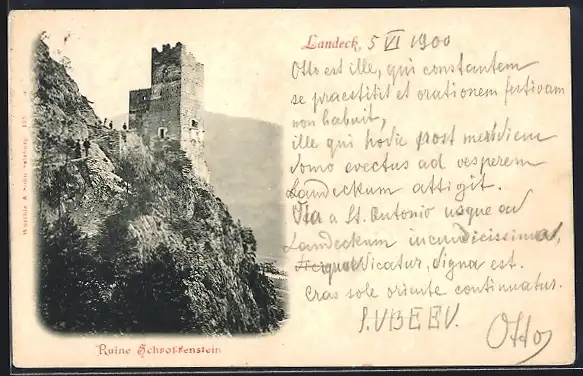 Landeck, 5 VI 1900
Otto est ille, qui constantem
se praestitit et orationem festivam
non habuit,
ille qui hodie post meridiem
domo evectus ad vesperem
Landeckum attigit.
Via a St. Antonio usque ad
Landeckum iucundicissima,
dicatur, digna est.
Cras sole oriente continuatur.
S.V.B.E.E.V.
Otto
Ruine Schroffenstein
Würthle & Sohn Salzburg